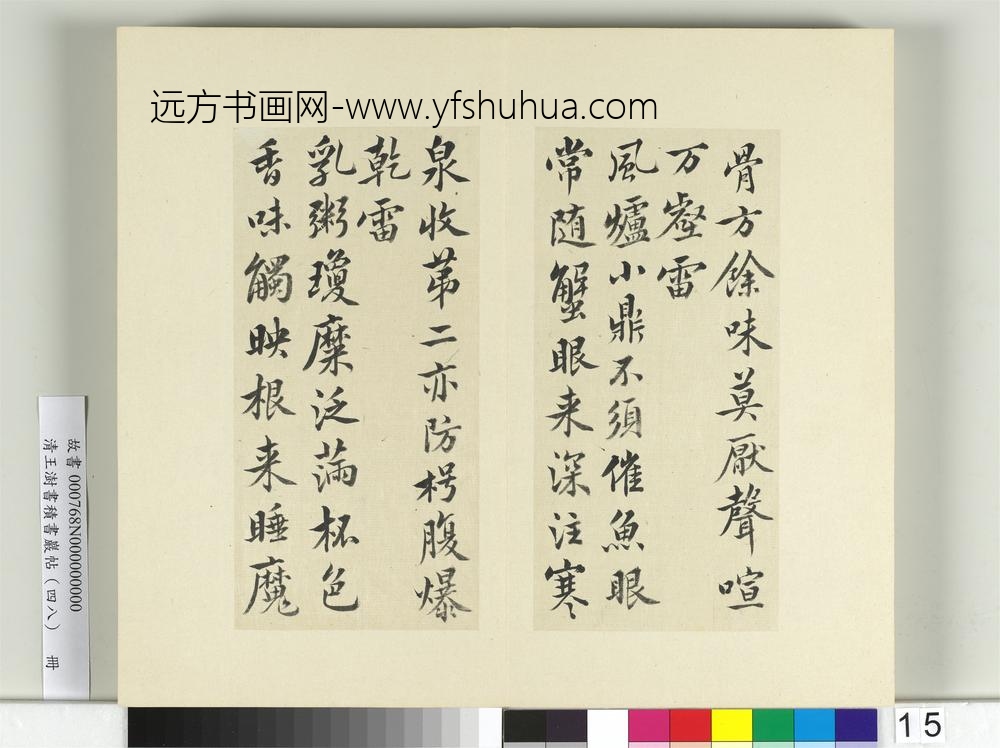 远方书画网-www.yfshuhua.com
骨方餘味莫厭聲喧
万壑雷
風爐小鼎不須催魚眼
常随蟹眼来深注寒
泉收苐二亦防枵腹爆
乾雷
乳粥瓊糜泛滿杯色
香味觸映根来睡魔
故書 000768N000000000
清王澍書積書巖帖(四八) 冊
15